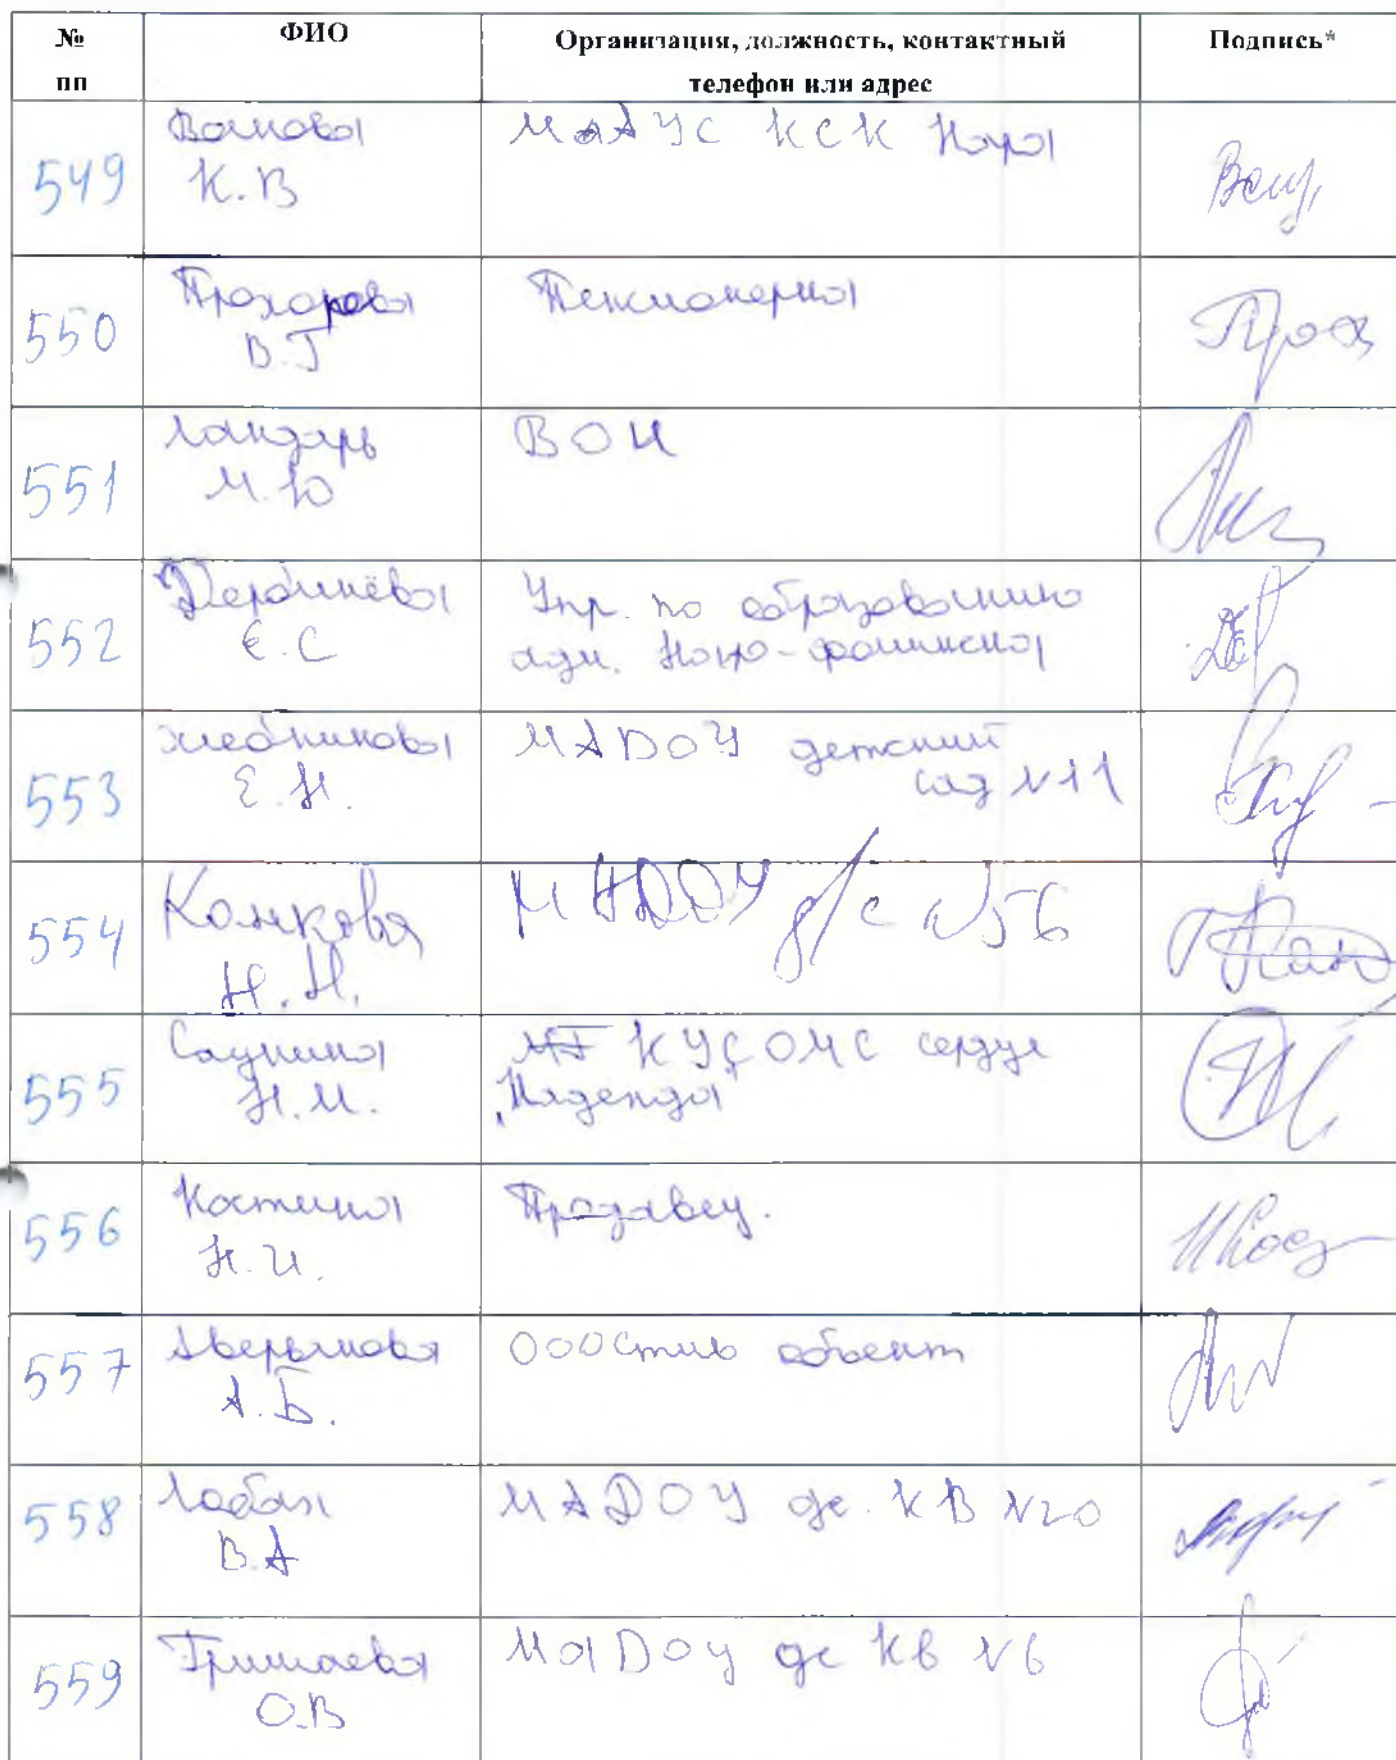 № пп
ФИО
Организация, должность, контактный
телефон или адрес
Подпись*
549
К.В
МАУС КСК Нара
550
Прохорова
В.Г
Пенсионерка
551
Ландарь
М.Ю
ВОИ
552
Е.С
Упр. по образованию
адм. Наро-фоминска
553
Хлебникова
Е.Н.
МАДОУ детский
сад N11
554
Комкова
Н.Н.
МАДОУ д/с N56
555
Саунина
Н.М.
КУСОМС сердце
"Надежда"
556
Костина
Н.И.
Продавец.
557
Аверьянова
А.Б.
ООО Стив объект
558
Лобан
В.А
МАДОУ дс. КВ N20
559
Гришаева
О.В
МаДОУ дс Кв N6